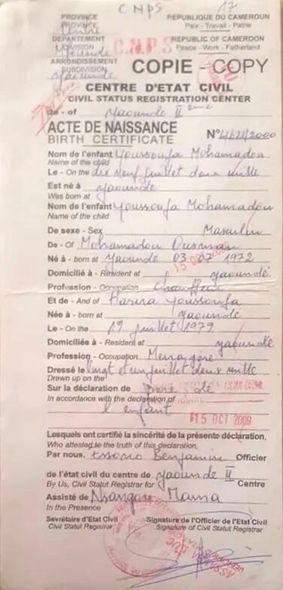 C N P S 17
PROVINCE REPUBLIQUE DU CAMEROUN
PROVINCE Paix - Travail - Patrie
Centre
DEPARTEMENT REPUBLIC OF CAMEROON
DIVISION C.N.P.S Peace - Work - Fatherland
ARRONDISSEMENT
SUBDIVISION COPIE - COPY
Yaounde
CENTRE D'ETAT CIVIL
CIVIL STATUS REGISTRATION CENTER
de - of Yaounde II eme
ACTE DE NAISSANCE
BIRTH CERTIFICATE N° /2000
Nom de l'enfant Youssoufa Mohamadou
Name of the child
Le - On the dix neuf juillet deux mille
Est né à Yaounde
Was born at
Nom de l'enfant Youssoufa Mohamadou
Name of the child
De sexe - Sex Masculin
De - Of Mohamadou Ousman
Né à - born at Yaounde 03 07 1972
Domicilié à - Resident at Yaoundé
Profession - Occupation Chauffeur
Et de - And of Youssoufa
Née à - born at Yaounde
Le - On the 19 juillet 1979
Domiciliée à - Resident at Yaounde
Profession - Occupation Menagère
Dressé le Vingt et un juillet deux mille
Drawn up on the
Sur la déclaration de
In accordance with the declaration of
l'enfant
15 OCT 2009
Lesquels ont certifié la sincérité de la présente déclaration.
Who attested the truth of this declaration.
Par nous, Essono Benjamin Officier
de l'état civil du centre de Yaounde II
By Us, Civil Status Registrar for Centre
Assisté de Nsangou Mama
In the Presence
Secrétaire d'Etat Civil Signature de l'Officier de l'Etat Civil
Civil Statut Registrar Signature of Civil Statut Registrar